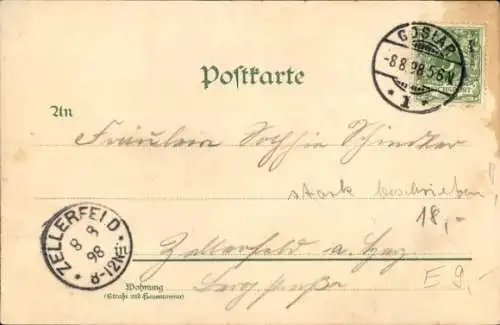 GOSLAR
-8.8.98.5-6.N.
* 1 *
Postkarte
An
Fräulein Sophie Schindler
stark beschrieben!
18,-
ZELLERFELD
8 8
98
* 8-12N *
Zellerfeld a. Harz
E 9,-
Wohnung
(Straße und Hausnummer)
Bergstraße